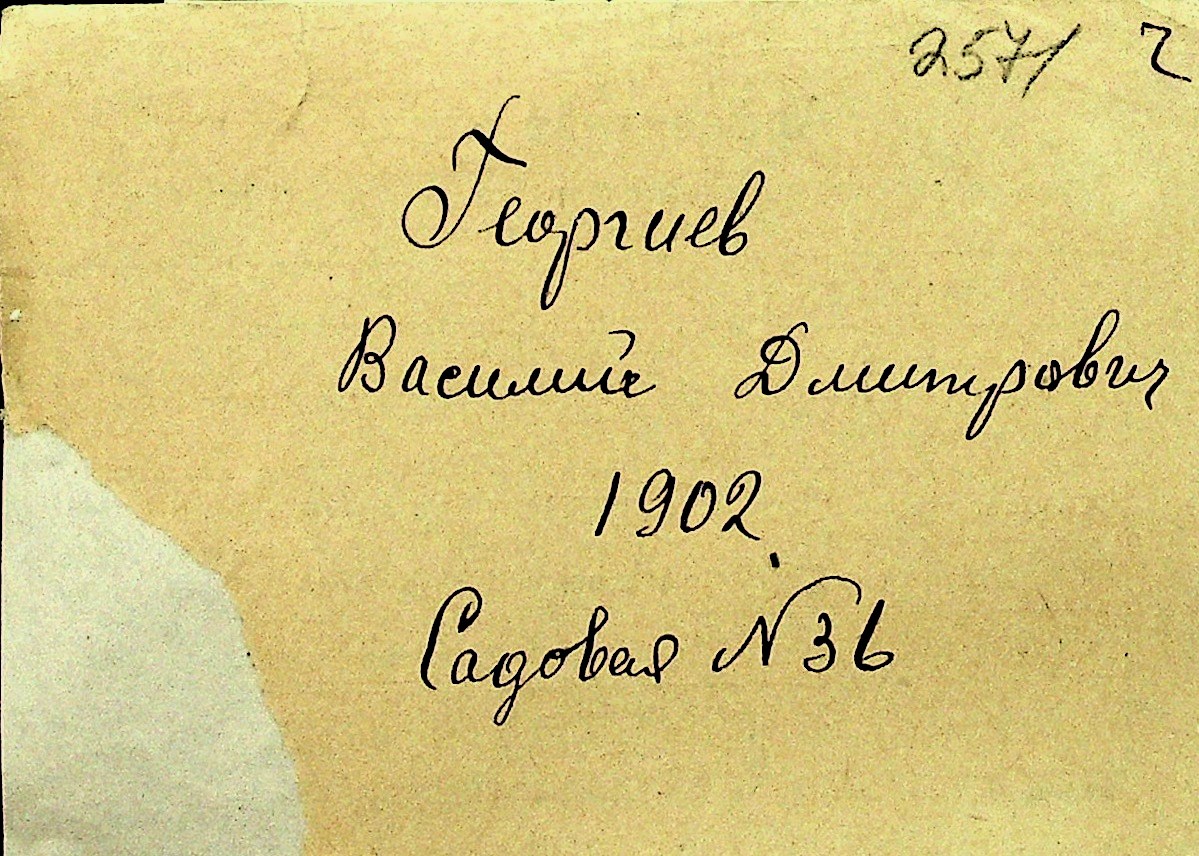 2571
Георгиев
Василий Дмитрович
1902
Садовая № 36